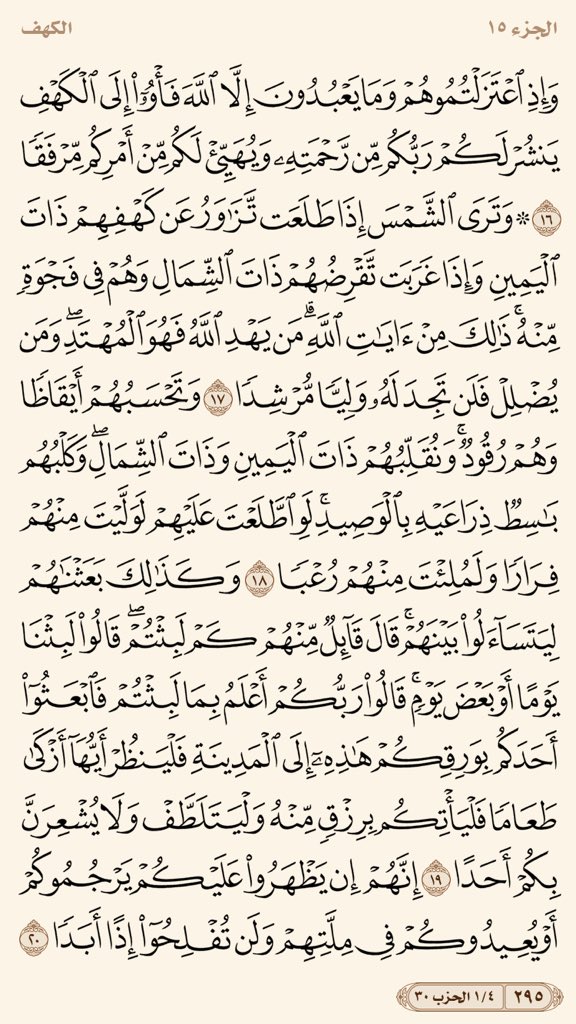 الجزء ١٥
الكهف
وَإِذِ ٱعْتَزَلْتُمُوهُمْ وَمَا يَعْبُدُونَ إِلَّا ٱللَّهَ فَأْوُۥٓا۟ إِلَى ٱلْكَهْفِ
يَنشُرْ لَكُمْ رَبُّكُم مِّن رَّحْمَتِهِۦ وَيُهَيِّئْ لَكُم مِّنْ أَمْرِكُم مِّرْفَقًا
١٦ * وَتَرَى ٱلشَّمْسَ إِذَا طَلَعَت تَّزَٰوَرُ عَن كَهْفِهِمْ ذَاتَ
ٱلْيَمِينِ وَإِذَا غَرَبَت تَّقْرِضُهُمْ ذَاتَ ٱلشِّمَالِ وَهُمْ فِى فَجْوَةٍ
مِّنْهُ ۚ ذَٰلِكَ مِنْ ءَايَٰتِ ٱللَّهِ ۗ مَن يَهْدِ ٱللَّهُ فَهُوَ ٱلْمُهْتَدِ ۖ وَمَن
يُضْلِلْ فَلَن تَجِدَ لَهُۥ وَلِيًّا مُّرْشِدًا ١٧ وَتَحْسَبُهُمْ أَيْقَاظًا
وَهُمْ رُقُودٌ ۚ وَنُقَلِّبُهُمْ ذَاتَ ٱلْيَمِينِ وَذَاتَ ٱلشِّمَالِ ۖ وَكَلْبُهُم
بَٰسِطٌ ذِرَاعَيْهِ بِٱلْوَصِيدِ ۚ لَوِ ٱطَّلَعْتَ عَلَيْهِمْ لَوَلَّيْتَ مِنْهُمْ
فِرَارًا وَلَمُلِئْتَ مِنْهُمْ رُعْبًا ١٨ وَكَذَٰلِكَ بَعَثْنَٰهُمْ
لِيَتَسَآءَلُوا۟ بَيْنَهُمْ ۚ قَالَ قَآئِلٌ مِّنْهُمْ كَمْ لَبِثْتُمْ ۖ قَالُوا۟ لَبِثْنَا
يَوْمًا أَوْ بَعْضَ يَوْمٍ ۚ قَالُوا۟ رَبُّكُمْ أَعْلَمُ بِمَا لَبِثْتُمْ فَٱبْعَثُوٓا۟
أَحَدَكُم بِوَرِقِكُمْ هَٰذِهِۦٓ إِلَى ٱلْمَدِينَةِ فَلْيَنظُرْ أَيُّهَآ أَزْكَىٰ
طَعَامًا فَلْيَأْتِكُم بِرِزْقٍ مِّنْهُ وَلْيَتَلَطَّفْ وَلَا يُشْعِرَنَّ
بِكُمْ أَحَدًا ١٩ إِنَّهُمْ إِن يَظْهَرُوا۟ عَلَيْكُمْ يَرْجُمُوكُمْ
أَوْ يُعِيدُوكُمْ فِى مِلَّتِهِمْ وَلَن تُفْلِحُوٓا۟ إِذًا أَبَدًا ٢٠
٢٩٥ | ١/٤ الحزب ٣٠